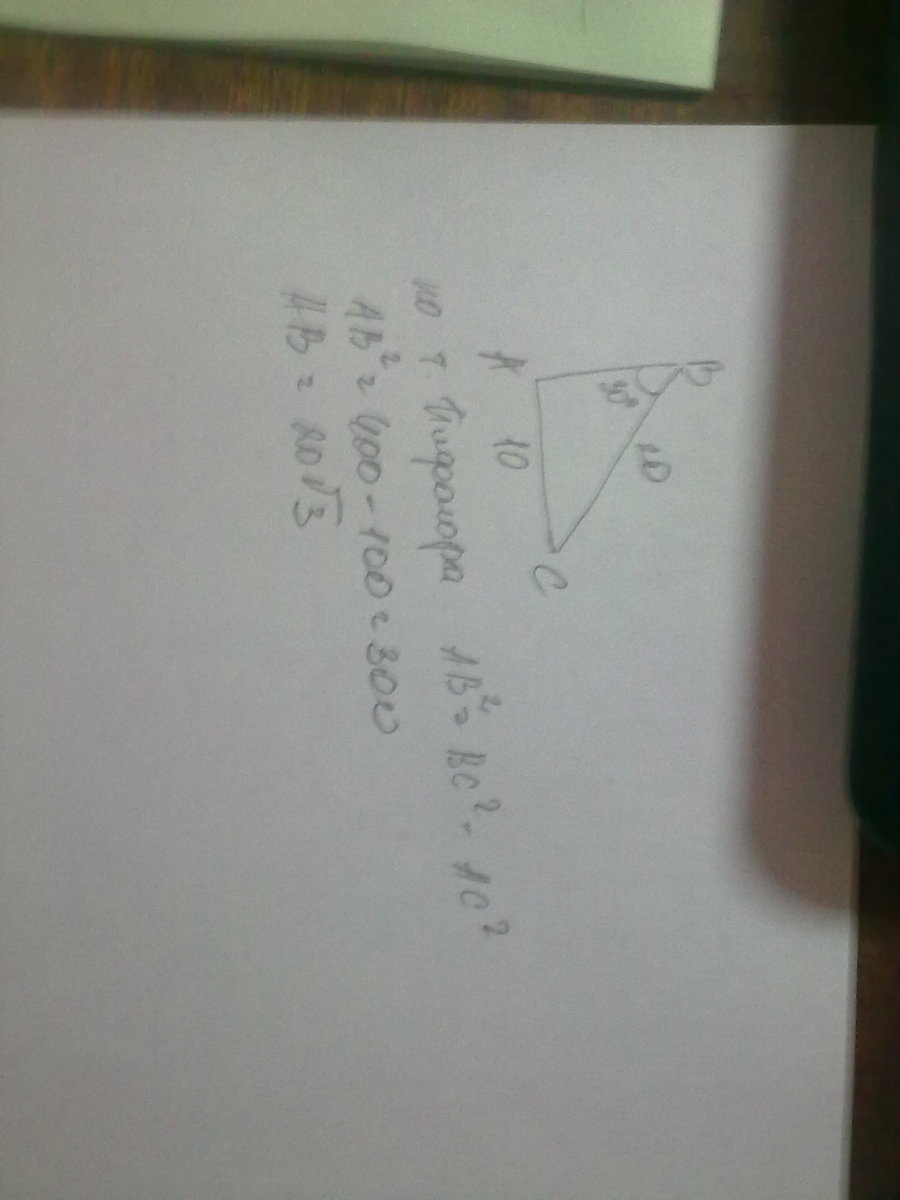 B
30°
20
A
10
C
по т. Пифагора AB² = BC² - AC²
AB² = 400 - 100 = 300
AB = 20√3